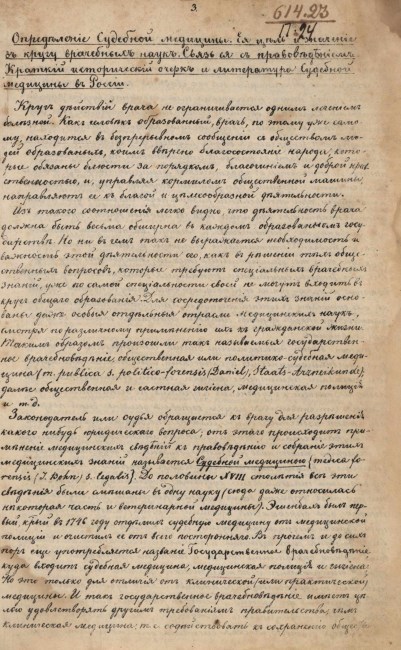 3
614.23
П-24
Опредѣленіе Судебной медицины. Ея цѣль и значеніе
въ кругу врачебныхъ наукъ. Связь ея съ правовѣдѣніемъ.
Краткій историческій очеркъ и литература Судебной
медицины въ Россіи.
Кругъ дѣйствій врача не ограничивается однимъ леченіемъ
болѣзней. Какъ человѣкъ образованный, врачъ, по этому уже само-
му, находится въ безпрерывномъ сообщеніи съ обществомъ лю-
дей образованныхъ, коимъ ввѣрено благосостояніе народа, кото-
рые обязаны блюсти за порядкомъ, благочиніемъ и доброй нрав-
ственностью, и, управляя кормиломъ общественной машины,
направляютъ ее къ благой и цѣлесообразной дѣятельности.
Изъ такого соотношенія легко видно, что дѣятельность врача
должна быть весьма обширна въ каждомъ образованномъ госу-
дарствѣ. Но ни въ чемъ такъ не выражается необходимость и
важность этой дѣятельности его, какъ въ рѣшеніи тѣхъ обще-
ственныхъ вопросовъ, которые требуютъ спеціальныхъ врачебныхъ
знаній, уже по самой спеціальности своей не могутъ входить въ
кругъ общаго образованія. Для сосредоточенія этихъ знаній осно-
ваны особыя отдѣльныя отрасли медицинскихъ наукъ,
смотря по различному примѣненію ихъ къ гражданской жизни.
Такимъ образомъ произошли такъ называемыя государствен-
ное врачебновѣдѣніе общественная или политико-судебная меди-
цина (m. publica s. politico-forensis, Daniel, Staats-Arzneikunde),
далѣе общественная и частная гигіена, медицинская полиція
и т. д.
Законодатель или судья обращается къ врачу для разрѣшенія
какого нибудь юридическаго вопроса; отъ этого происходитъ при-
мѣненіе медицинскихъ свѣдѣній къ правовѣдѣнію и собраніе этихъ
медицинскихъ знаній называется Судебной медициною (medica fo-
rensis (J. Bohn) s. legalis). До половины XVIII столѣтія всѣ эти
свѣдѣнія были смѣшаны въ одну науку (сюда даже относилась
нѣкоторая часть и ветеринарной медицины). Эшенбахъ былъ пер-
вый, который въ 1746 году отдѣлилъ судебную медицину отъ медицинской
полиціи и очистилъ ее отъ всего посторонняго. Впрочемъ и до сихъ
поръ еще употребляется названіе Государственное врачебновѣдѣніе,
куда входитъ судебная медицина, медицинская полиція и гигіена.
Но это только для отличія отъ клинической (или практической)
медицины. И такъ государственное врачебновѣдѣніе имѣетъ цѣ-
лью удовлетворять другимъ требованіямъ правительства, чѣмъ
клиническая медицина; т. е. содѣйствовать къ сохраненію обще-